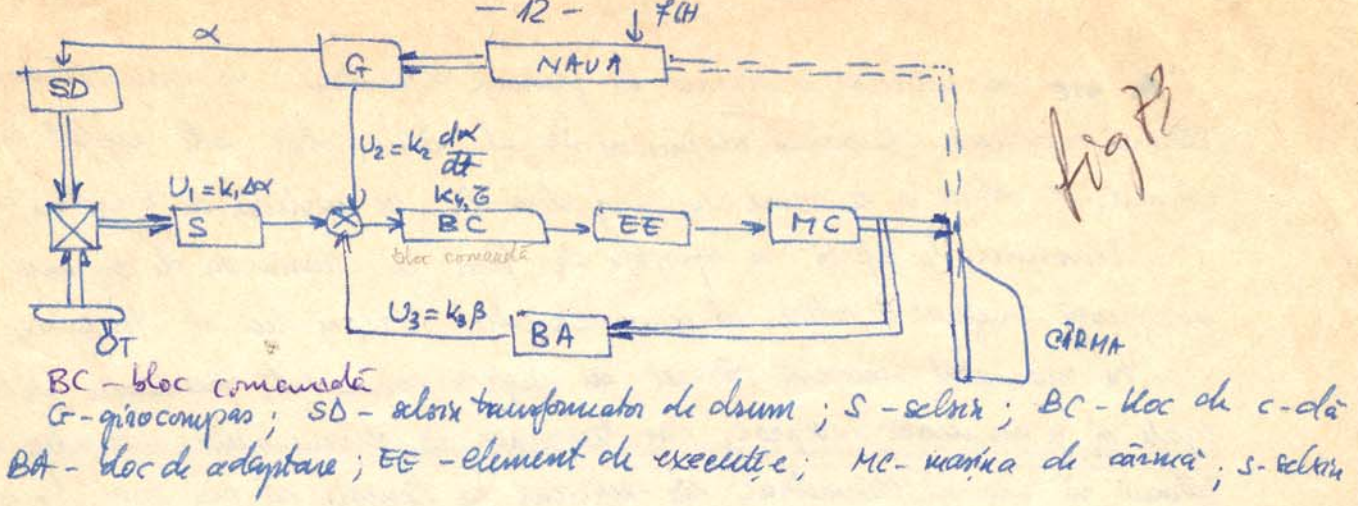 — 12 —
f(t)
α
G
NAVA
SD
U₂ = k₂ dα/dt
fig 72
U₁ = k₁Δα
S
k₄, τ
BC
bloc comandă
EE
MC
U₃ = k₃β
BA
CÂRMA
T
BC – bloc comandă
G – girocompas ; SD – selsin transformator de drum ; S – selsin ; BC – bloc de c-dă
BA – bloc de adaptare ; EE – element de execuție ; MC – mașina de cârmă ; S – selsin